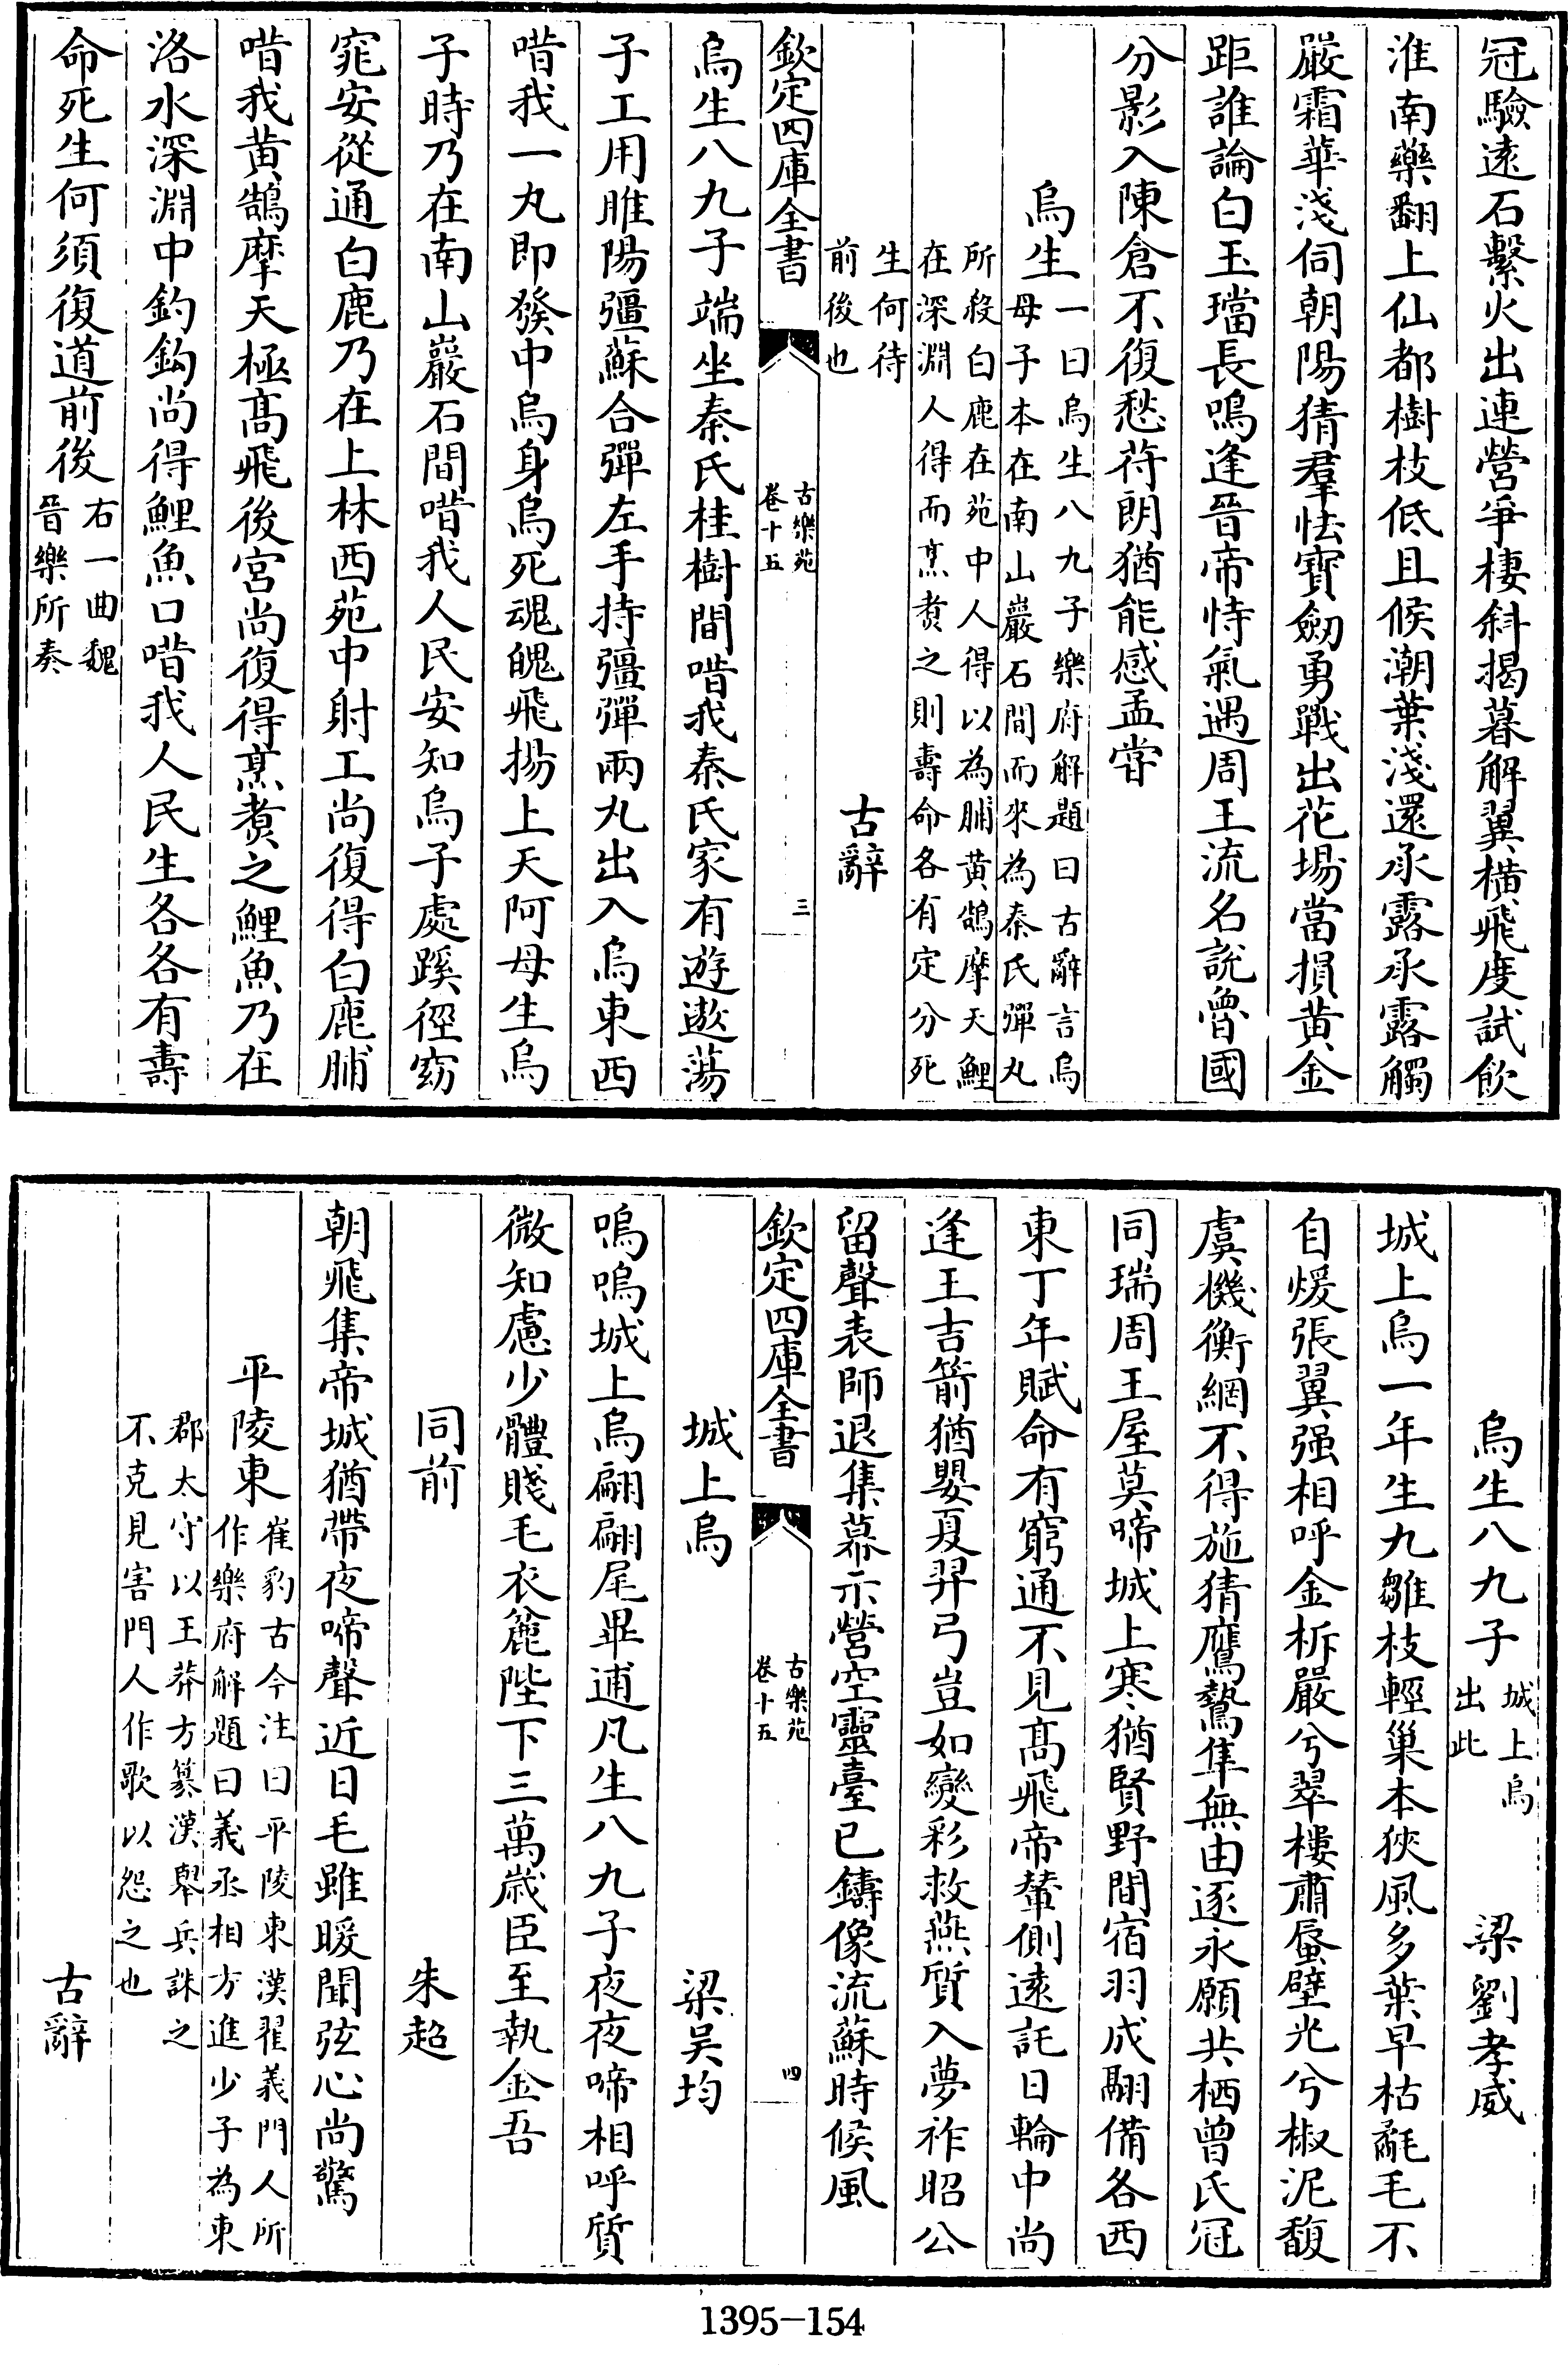 冠驗遠石繫火出連營爭棲斜揭暮解翼橫飛度試飲
淮南藥翻上仙都樹枝低且候潮葉淺還承露承露觸
嚴霜華淺伺朝陽猜羣怯寶劒勇戰出花場當損黃金
距誰論白玉璫長鳴逢晉帝恃氣遇周王流名説魯國
分影入陳倉不復愁苻朗猶能感孟甞
烏生一曰烏生八九子樂府解題曰古辭言烏
母子本在南山巖石間而來為秦氏彈丸
所殺白鹿在苑中人得以為脯黃鵠摩天鯉
在深淵人得而烹煑之則壽命各有定分死
生何待
前後也
古辭
欽定四庫全書
古樂苑
卷十五
三
烏生八九子端坐秦氏桂樹間唶我秦氏家有遊遨蕩
子工用睢陽彊蘇合彈左手持彊彈兩丸出入烏東西
唶我一丸即發中烏身烏死魂魄飛揚上天阿母生烏
子時乃在南山巖石間唶我人民安知烏子處蹊徑窈
窕安從通白鹿乃在上林西苑中射工尚復得白鹿脯
唶我黃鵠摩天極高飛後宮尚復得烹煑之鯉魚乃在
洛水深淵中釣鈎尚得鯉魚口唶我人民生各各有壽
命死生何須復道前後右一曲魏
晉樂所奏
烏生八九子城上烏
出此
梁劉孝威
城上烏一年生九雛枝輕巢本狹風多葉早枯氄毛不
自煖張翼强相呼金柝嚴兮翠樓肅蜃壁光兮椒泥馥
虞機衡網不得施猜鷹鷙隼無由逐永願共栖曾氏冠
同瑞周王屋莫啼城上寒猶賢野間宿羽成翮備各西
東丁年賦命有窮通不見高飛帝輦側遠託日輪中尚
逢王吉箭猶嬰夏羿弓豈如變彩救燕質入夢祚昭公
留聲表師退集幕示營空靈臺已鑄像流蘇時候風
欽定四庫全書
古樂苑
卷十五
四
城上烏
梁吳均
嗚嗚城上烏翩翩尾畢逋凡生八九子夜夜啼相呼質
微知慮少體賤毛衣麄陛下三萬歲臣至執金吾
同前
朱超
朝飛集帝城猶帶夜啼聲近日毛雖暖聞弦心尚驚
平陵東崔豹古今注曰平陵東漢翟義門人所
作樂府解題曰義丞相方進少子為東
郡太守以王莽方簒漢舉兵誅之
不克見害門人作歌以怨之也
古辭
1395-154